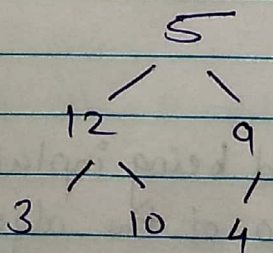 5
12 9
3 10 4